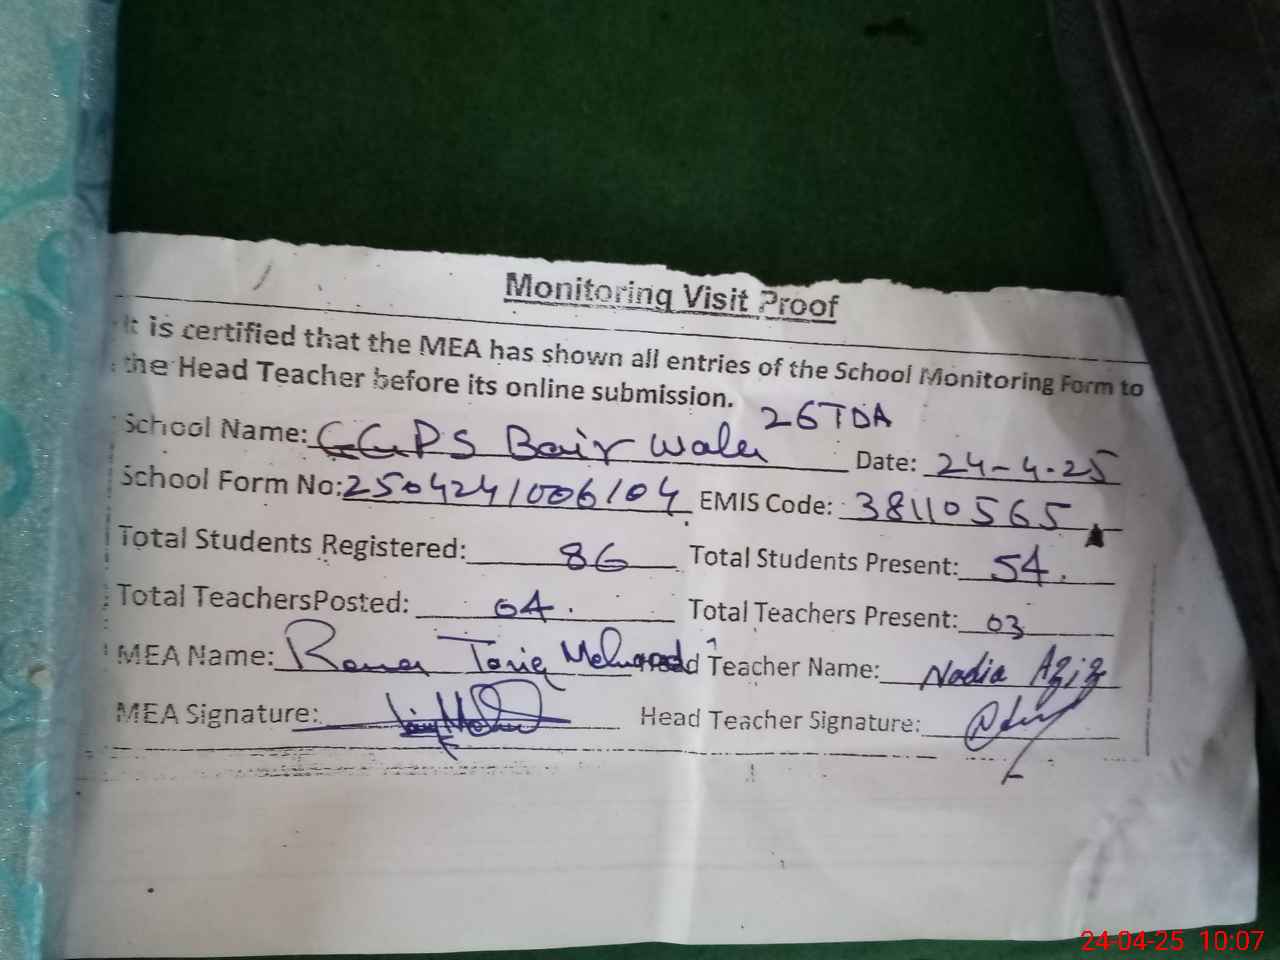 Monitoring Visit Proof
It is certified that the MEA has shown all entries of the School Monitoring Form to
the Head Teacher before its online submission.
26TDA
School Name: GGPS Bair Wala Date: 24-4-25
School Form No: 2504241006104 EMIS Code: 38110565
Total Students Registered: 86 Total Students Present: 54.
Total TeachersPosted: 04. Total Teachers Present: 03
MEA Name: Rana Tariq Mehmood Head Teacher Name: Nadia Aziz
MEA Signature: Head Teacher Signature:
24-04-25 10:07